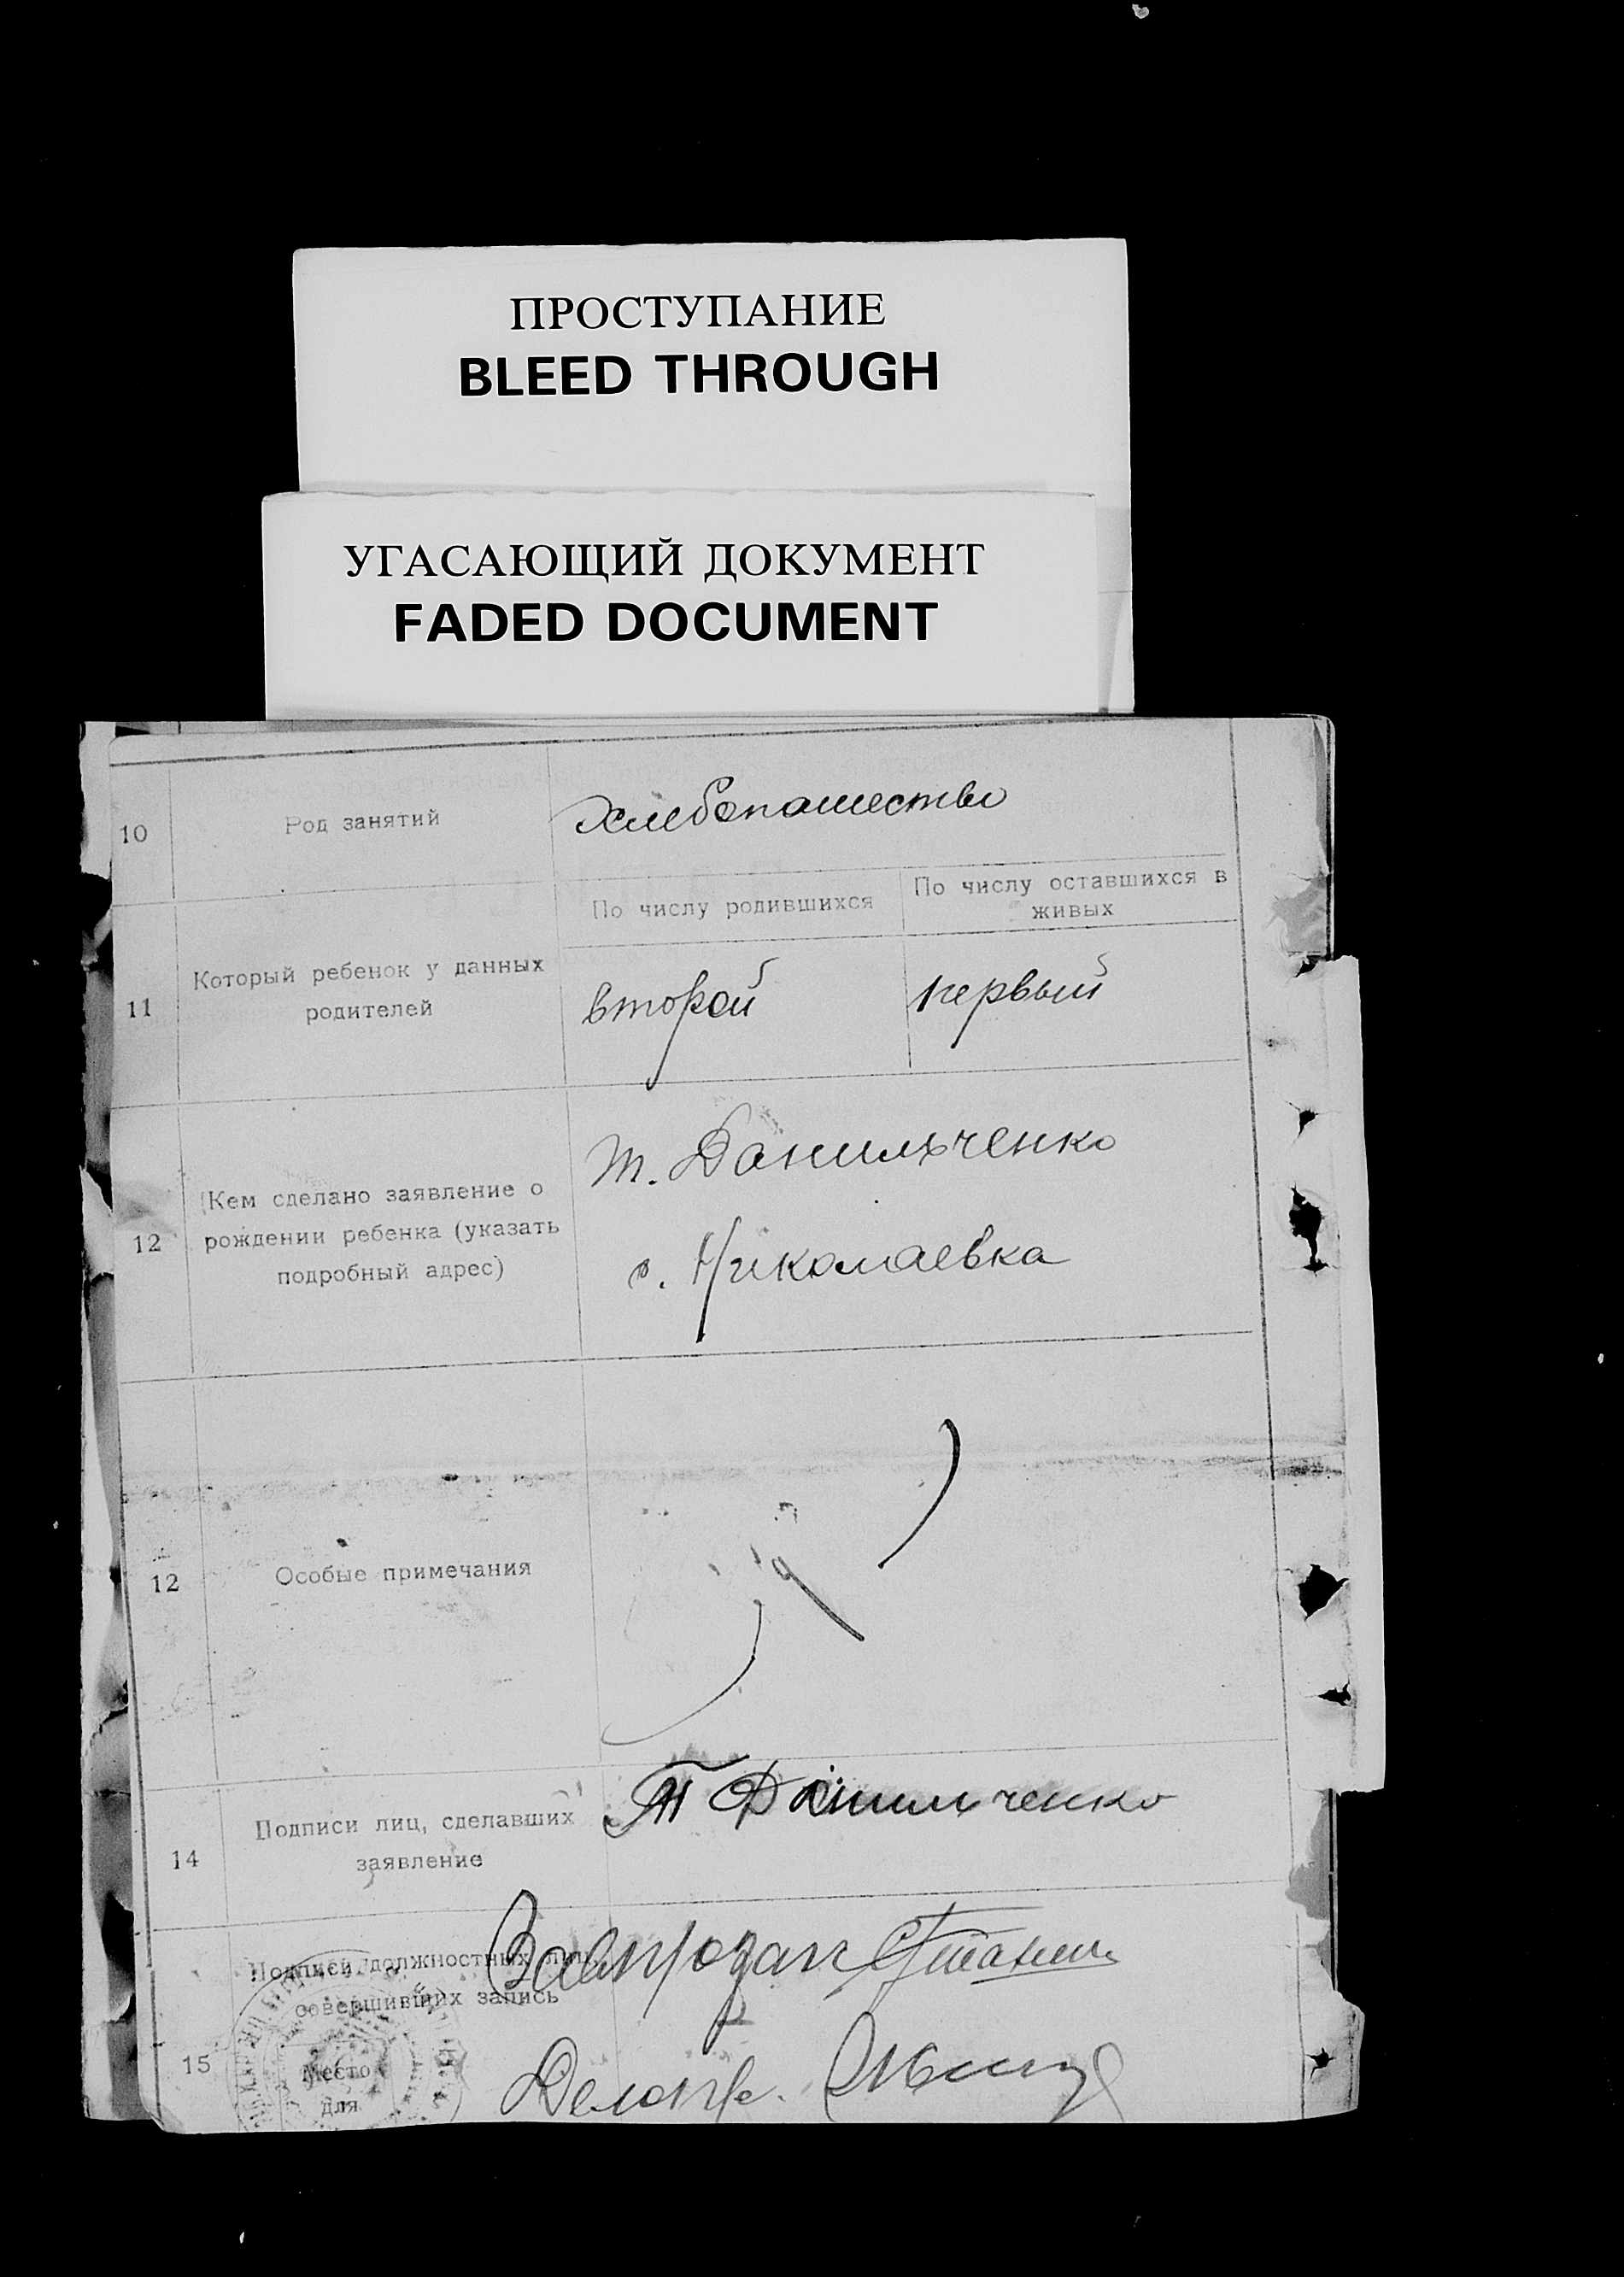 ПРОСТУПАНИЕ
BLEED THROUGH
УГАСАЮЩИЙ ДОКУМЕНТ
FADED DOCUMENT
10 Род занятий Хлебопашество
По числу родившихся По числу оставшихся в
живых
11 Который ребенок у данных
родителей второй первый
12 (Кем сделано заявление о
рождении ребенка (указать
подробный адрес)
т. Данильченко
с. Николаевка
12 Особые примечания
14 Подписи лиц, сделавших
заявление
Т Данильченко
15 Подписи должностных лиц
совершивших запись
Место
для
Делопр.